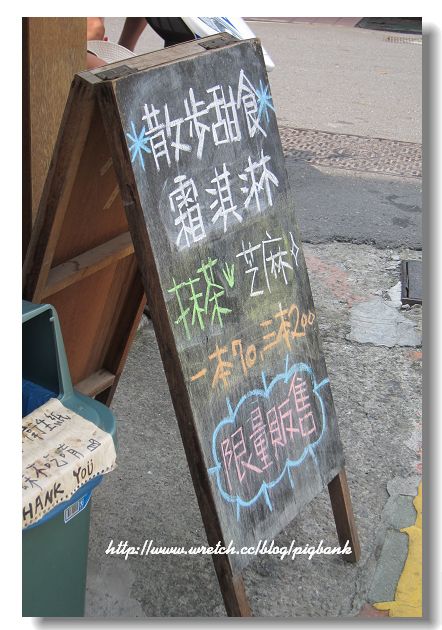 散步甜食
霜淇淋
抹茶 芝麻
一本70,三本200
限量販售
THANK YOU
http://www.wretch.cc/blog/pigbank